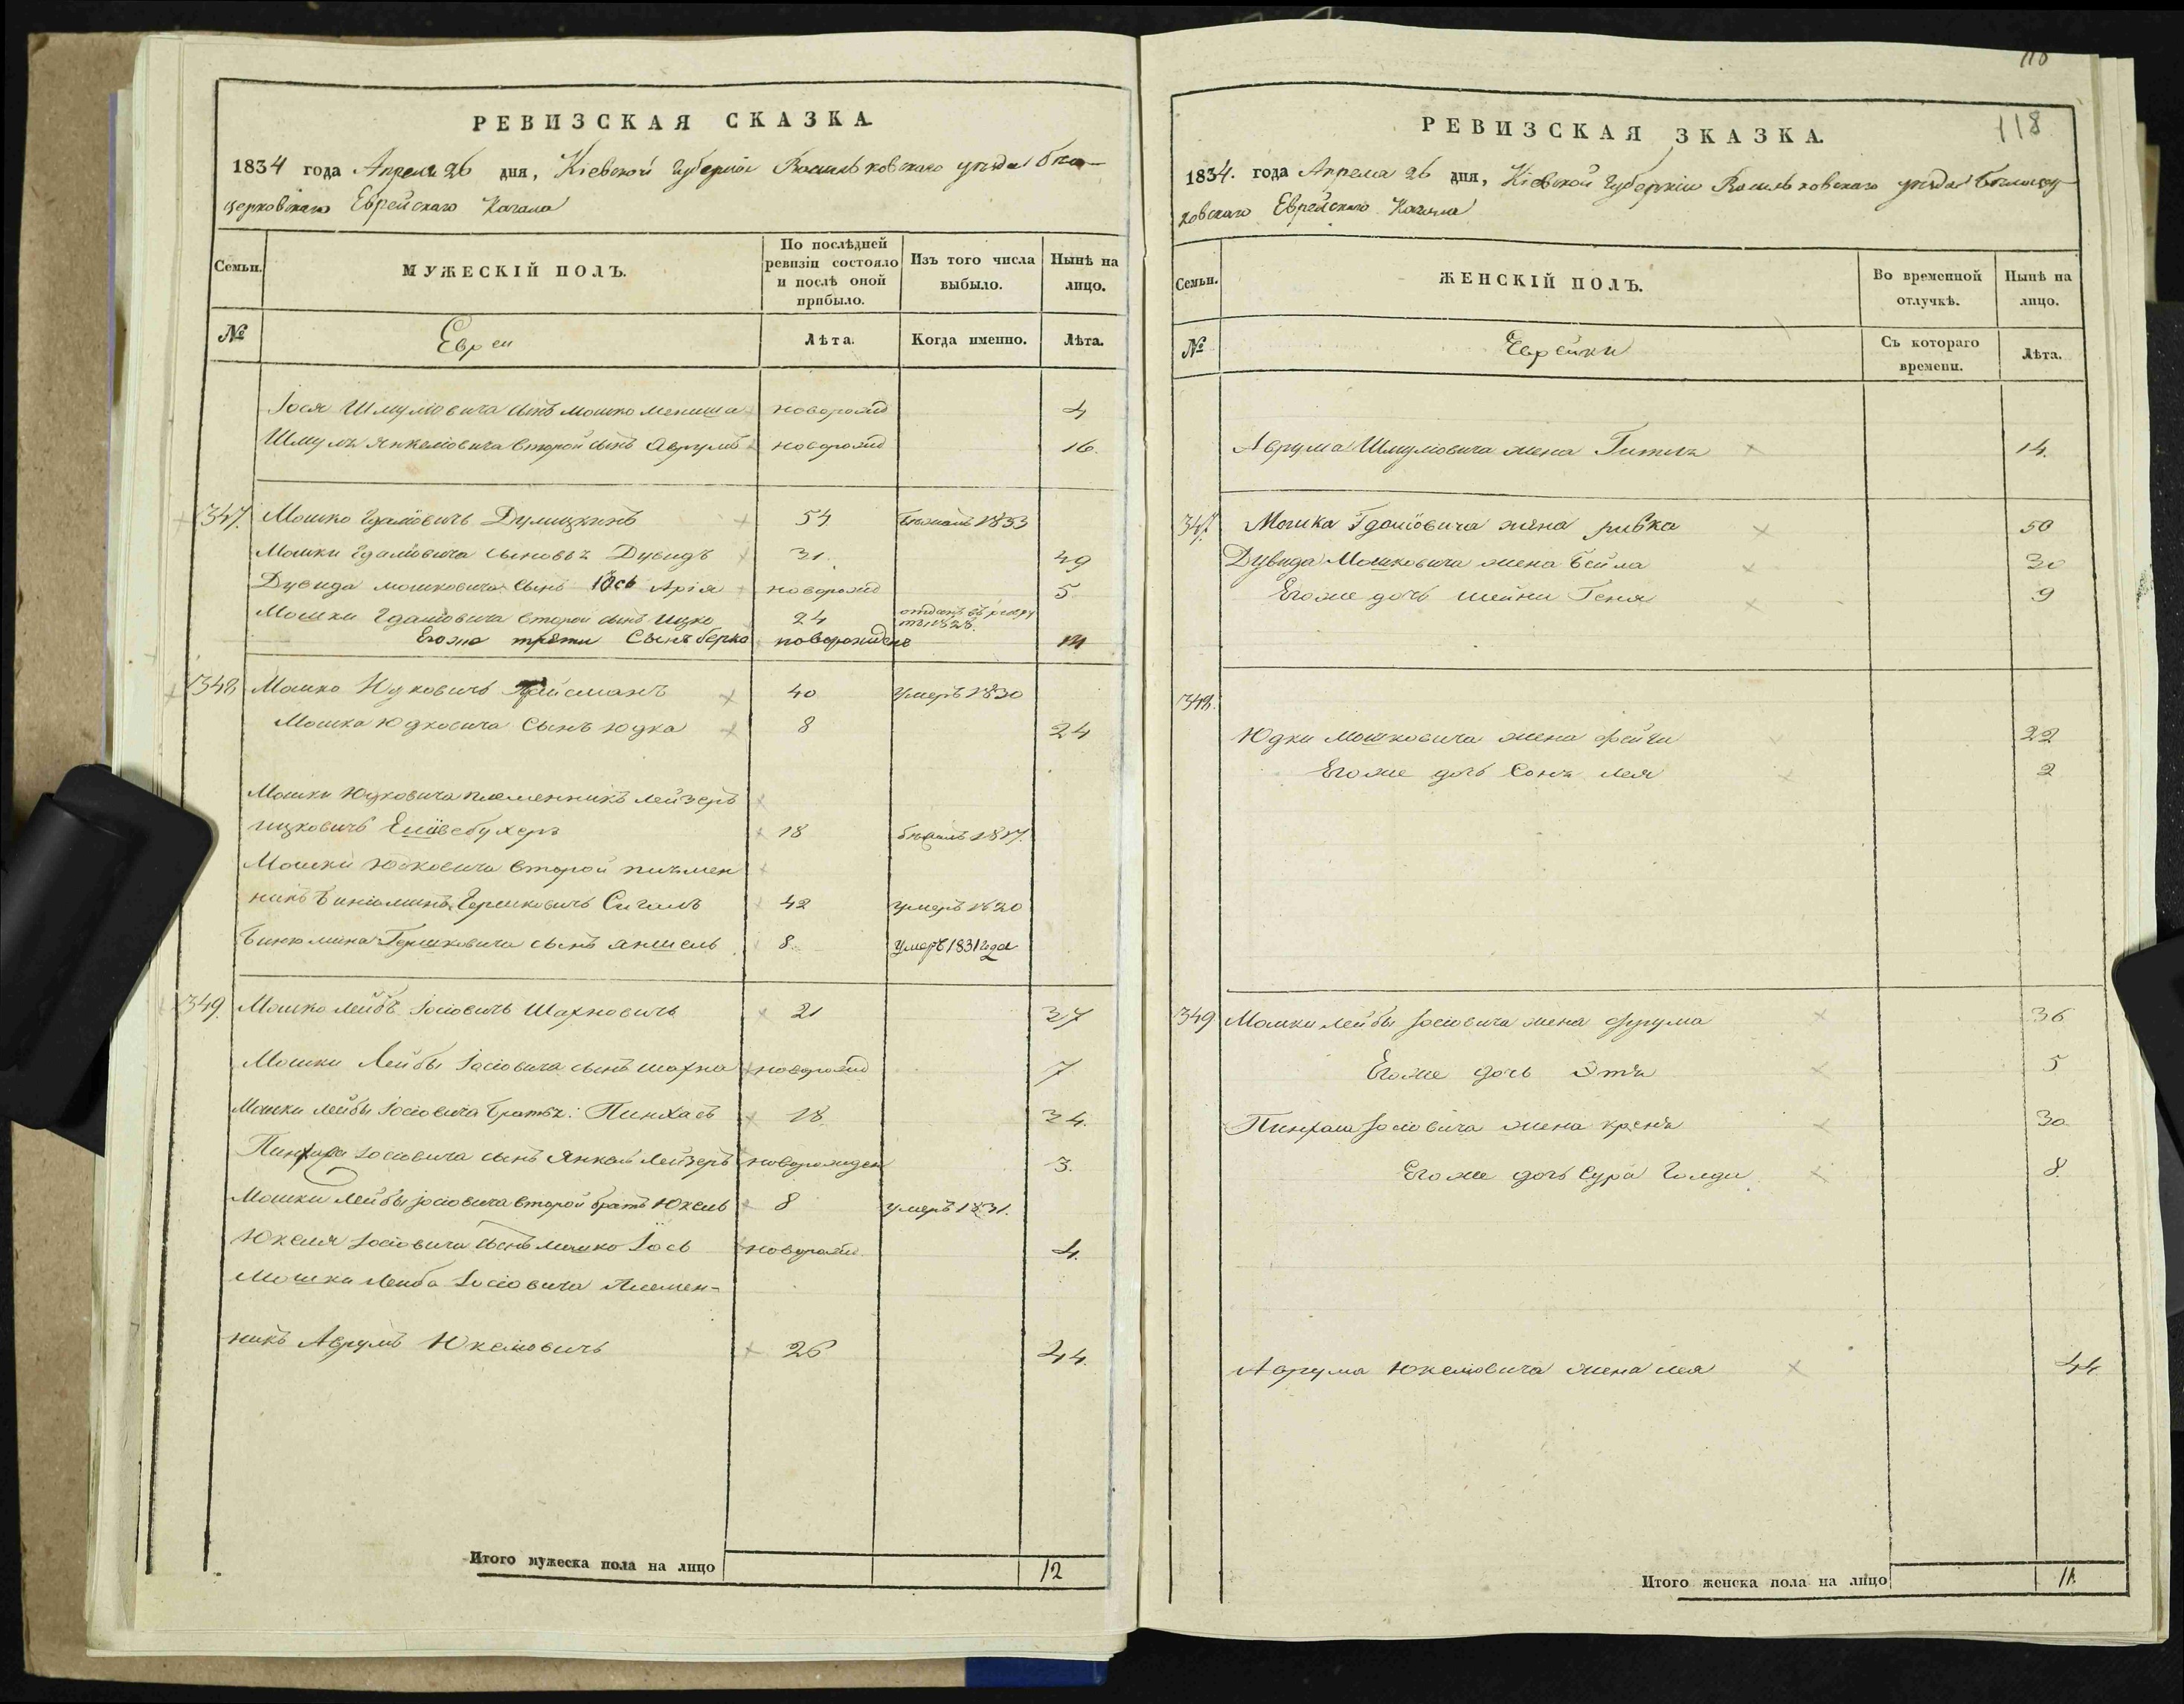 118
РЕВИЗСКАЯ СКАЗКА.
1834 года Апреля 26 дня, Кіевской Губерніи Васильковскаго уезда Бѣло-
церковскаго Еврейскаго Кагала
Семьи.
МУЖЕСКІЙ ПОЛЪ.
По послѣдней ревизіи состояло и послѣ оной прибыло.
Изъ того числа выбыло.
Нынѣ на лицо.
№
Евреи
Лѣта.
Когда именно.
Лѣта.
Іося Шмуліовича сынъ Мошко новорожд 4
Шмуля Янкеліовича второй сынъ Аврумъ новорожд 16.
1347. Мошко Гдаліовичъ 54 1833
Мошки Гдаліовича сыновья Дувидъ 31. 49
Дувида Мошковича сынъ Іось Арія новорожд 5
Мошки Гдаліовича второй сынъ Ицко 24 отданъ въ рекру 1828.
Егоже трети Сынъ берко новорожденъ
1348 Мошко Юдковичъ 40 умеръ 1830
Мошка Юдковича Сынъ Юдка 8 24
Мошки Юдковича племенникъ Лейзеръ
Ицковичъ 18 бежалъ 1817.
Мошки Юдковича второй племен
никъ Биніоминъ Гершковичъ Сигалъ 42 умеръ 1820
Бинюмина Гершковича сынъ Аншель 8. умеръ 1831 года
1349. Мошко Лейбъ Іосіовичъ Шахновичъ 21 37
Мошки Лейбы Іосіовича сынъ Шахна новорожд 7
Мошки Лейбы Іосіовича братья: Пинхасъ 18. 34.
Пинхаса Іосіовича сынъ Янкель Лейзеръ новорожден 3.
Мошки Лейбы Іосіовича второй братъ Юкель 8 умеръ 1831.
Юкеля Іосіовича сынъ Мошко Іось новорожд 4.
Мошки Лейба Іосіовича Племен-
никъ Аврумъ Юкеліовичъ 26 44.
Итого мужеска пола на лицо 12
РЕВИЗСКАЯ ЗКАЗКА.
118
1834. года Апреля 26 дня, Кіевской Губерніи Васильковскаго уезда Белоцер-
ковскаго Еврейскаго Кагала
Семьи.
ЖЕНСКІЙ ПОЛЪ.
Во временной отлучкѣ.
Нынѣ на лицо.
№
Еврейки
Съ котораго времени.
Лѣта.
Аврума Шмуліовича жена Гитля 14.
347. Мошка Гдаліовича жена Ривка 50
Дувида Мошковича жена Бейла 30
Егоже дочь Шейни Геня 9
1348.
Юдки Мошковича жена Фейги 22
Егоже дочь Соня Лея 2
1349 Мошки Лейбы Іосіовича жена Фрума 36
Егоже дочь Этя 5
Пинхаса Іосіовича жена Креня 30
Егоже дочь Сура Голда 8.
Аврума Юкеліовича жена Лея 44
Итого женска пола на лицо 11.